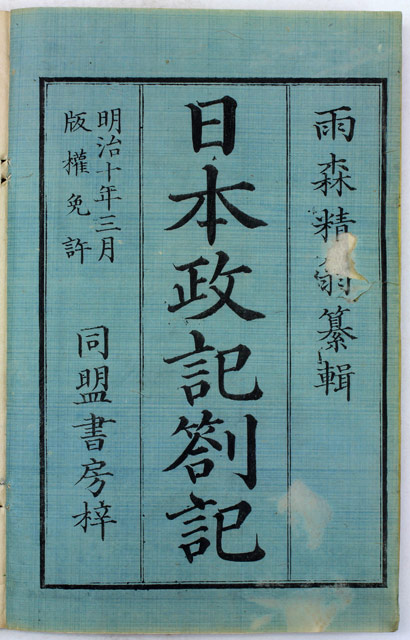 雨森精翁纂輯
日本政記劄記
明治十年三月
版權免許
同盟書房梓